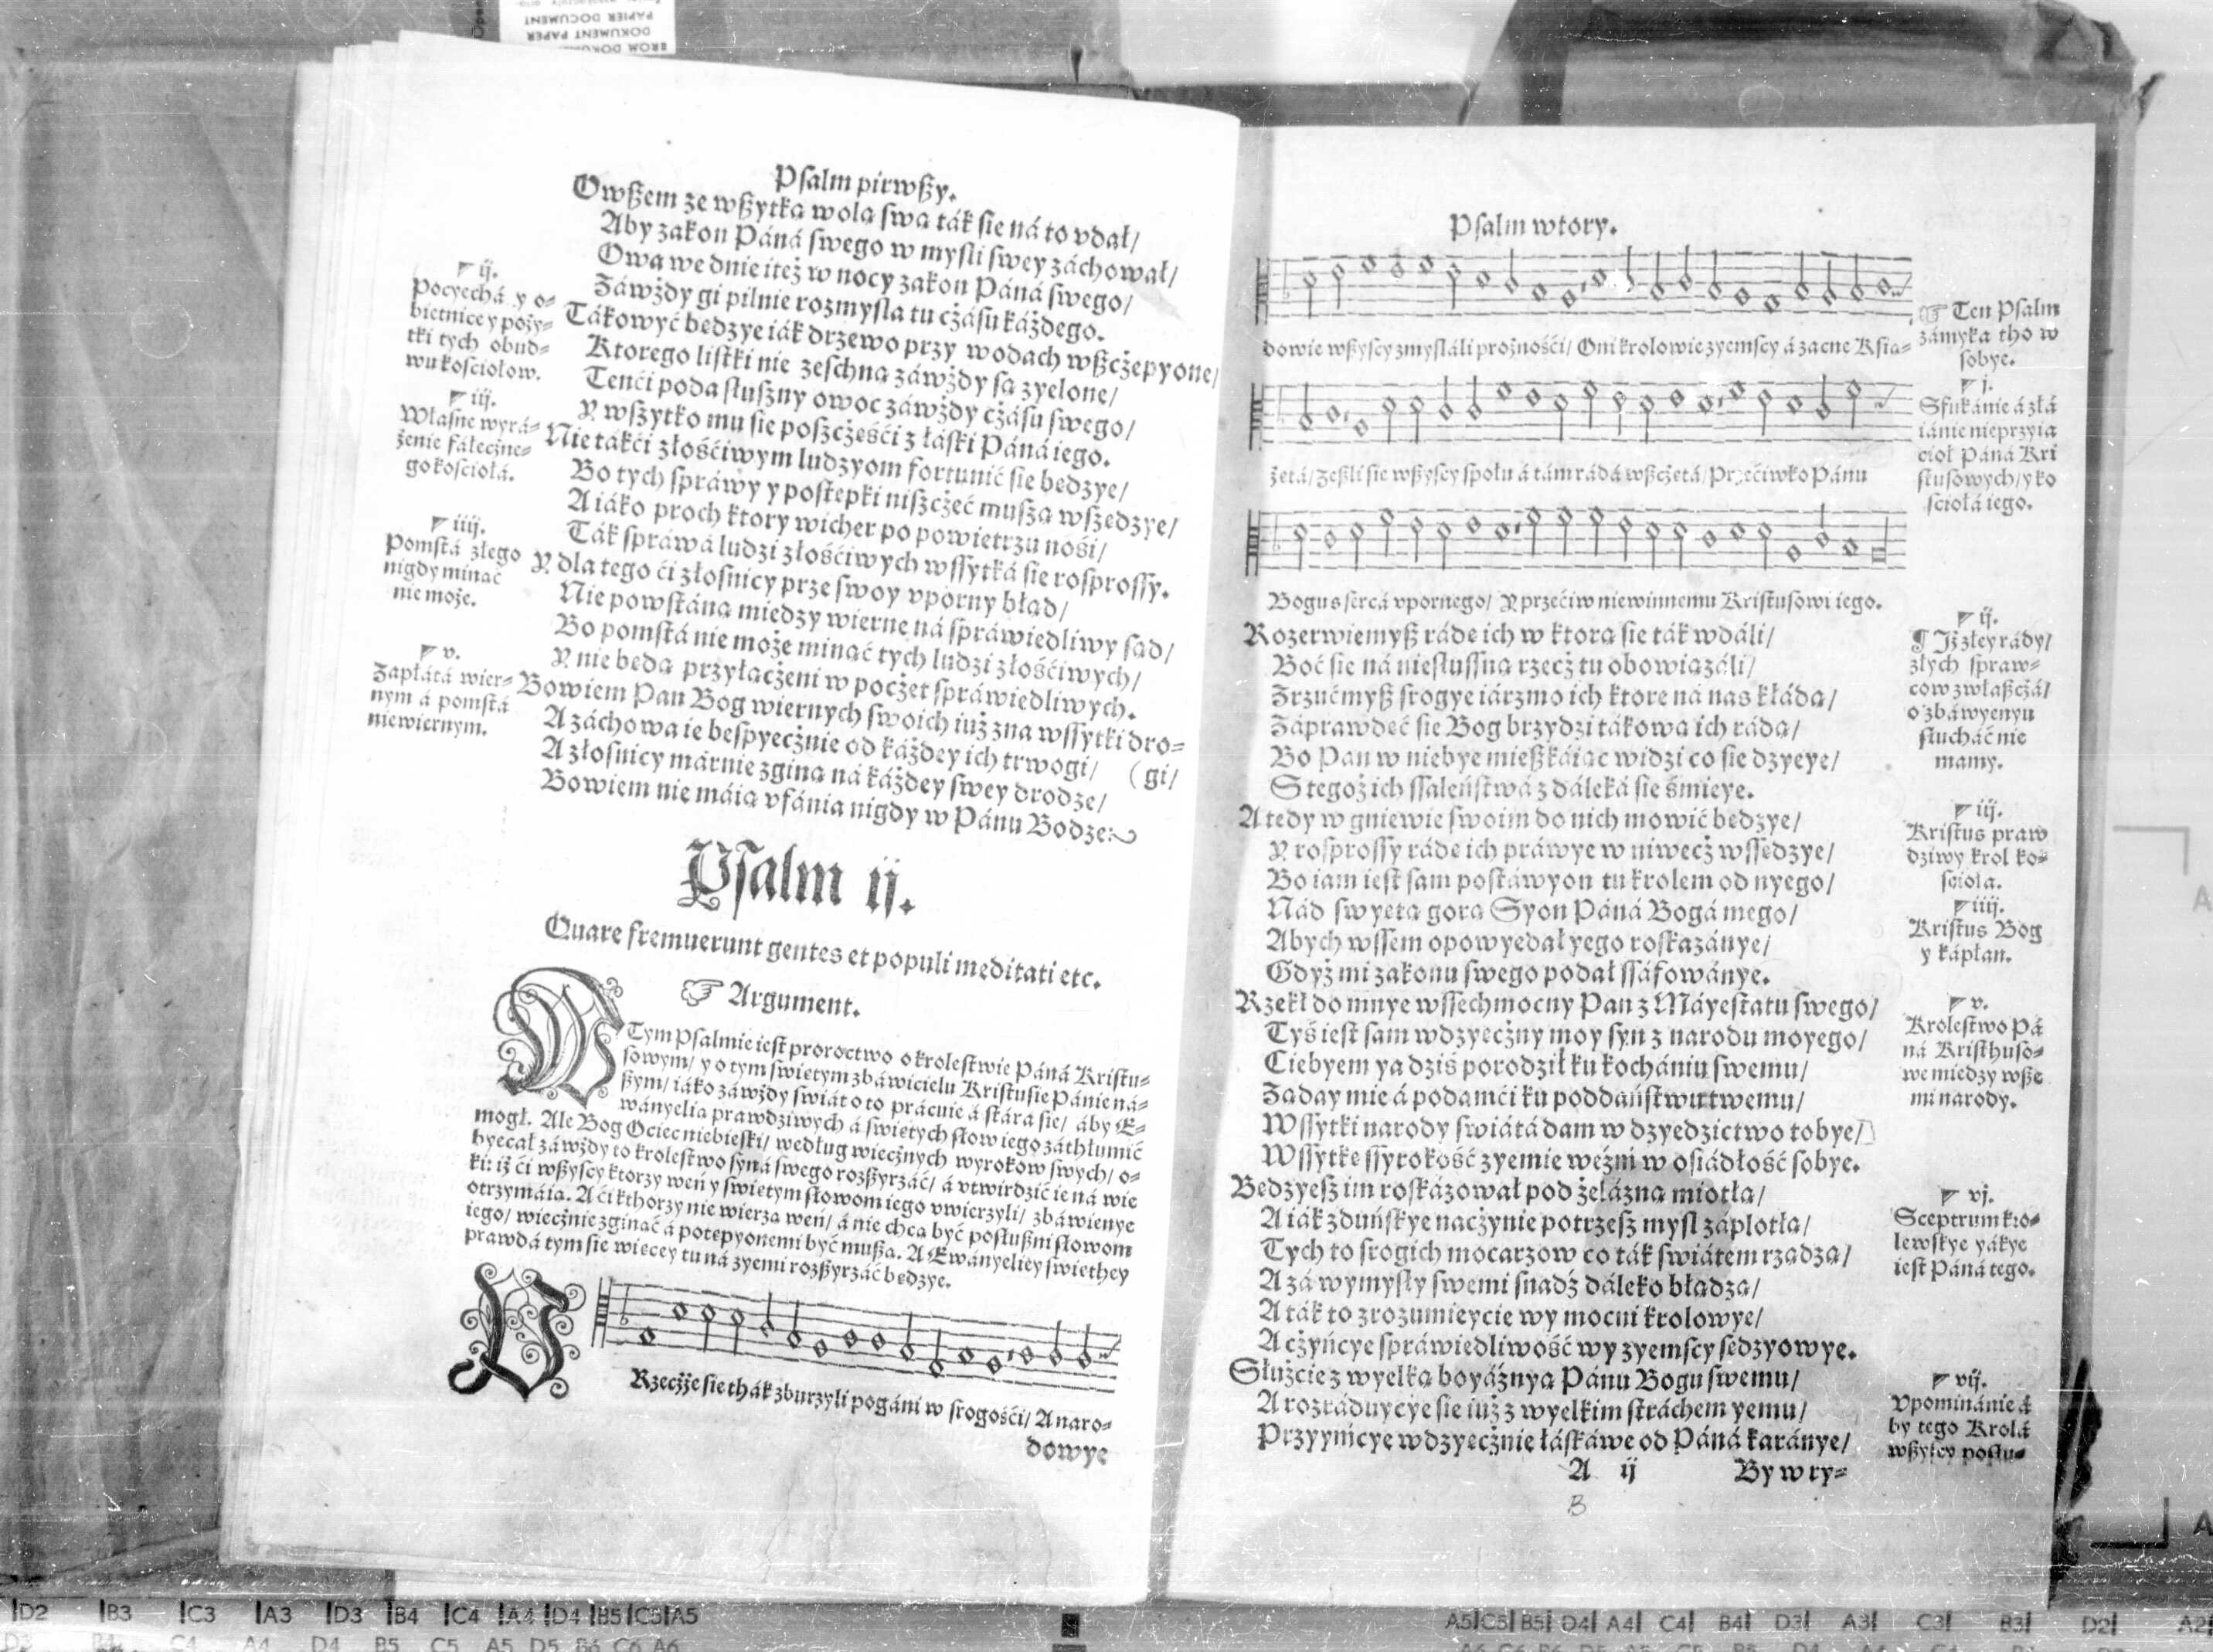 PAPIER DOCUMENT
DOKUMENT PAPER
Psalm pirwßy.
Owßem ze wßytka wola swa ták sie ná to vdał/
Aby zakon Páná swego w mysli swey záchował/
Owa we dnie iteż w nocy zakon Páná swego/
Záwżdy gi pilnie rozmysla tu cżásu káżdego.
Tákowyć bedzye iák drzewo przy wodach wßcżepyone/
Ktorego listki nie zeschna záwżdy sa zyelone/
Tenći poda słußny owoc záwżdy cżásu swego/
Y wszytko mu sie poszcżeśći z łáski Páná iego.
Nie tákći złośćiwym ludzyom fortunić sie bedzye/
Bo tych spráwy y postepki niszcżeć musza wszedzye/
A iáko proch ktory wicher po powietrzu nośi/
Ták spráwá ludzi złośćiwych wssytká sie rosprossy.
Y dla tego ći złosnicy prze swoy vporny bład/
Nie powstána miedzy wierne ná spráwiedliwy sad/
Bo pomstá nie może minąć tych ludzi złośćiwych/
Y nie beda przyłacżeni w pocżet spráwiedliwych.
Bowiem Pan Bog wiernych swoich iuż zna wssytki dro=
A záchowa ie bespyecżnie od káżdey ich trwogi/ (gi/
A złosnicy márnie zgina ná káżdey swey drodze/
Bowiem nie máia vfánia nigdy w Pánu Bodze:
ij.
Pocyechá y o=
bietnice y poży=
tki tych obud=
wu kosciołow.
iij.
Własne wyrá=
żenie fałecżne=
go kosciołá.
iiij.
Pomstá złego
nigdy minąć
nie może.
v.
Zapłátá wier=
nym á pomstá
niewiernym.
Psalm ij.
Quare fremuerunt gentes et populi meditati etc.
☞ Argument.
W Tym Psalmie iest proroctwo o krolestwie Páná Kristu=
sowym/ y o tym swietym zbáwicielu Kristusie Pánie ná=
ßym/ iáko záwżdy swiát o to prácuie á stára sie/ áby E=
wányelia prawdziwych á swietych słow iego záthłumić
mogł. Ale Bog Ociec niebieski/ według wiecżnych wyrokow swych/ o=
byecał záwżdy to krolestwo syná swego rozßyrzáć/ á vtwirdzić ie ná wie
ki: iż ći wßyscy ktorzy weń y swietym słowom iego vwierzyli/ zbáwienye
otrzymáia. A ći kthorzy nie wierza weń/ á nie chca być posłußni słowom
iego/ wiecżnie zginąć á potepyonemi być mußa. A Ewányeliey swiethey
prawdá tym sie wiecey tu ná zyemi rozßyrzáć bedzye.
Rzecżże sie thák zburzyli pogáni w srogośći/ A naro=
dowye
Psalm wtory.
dowie wßyscy zmysláli prożnośći/ Oni krolowie zyemscy á zacne Ksia=
żetá/ Zeßli sie wßyscy społu á tám rádá wßcżetá/ Przećiwko Pánu
Bogu s sercá vpornego/ Y przećiw niewinnemu Kristusowi iego.
Rozerwiemyß ráde ich w ktora sie ták wdáli/
Boć sie ná niesłussna rzecż tu obowiazáli/
Zrzućmyß srogye iárzmo ich ktore ná nas kłáda/
Záprawdeć sie Bog brzydzi tákowa ich ráda/
Bo Pan w niebye mießkáiac widzi co sie dzyeye/
S tegoż ich ssaleństwá z dáleká sie śmieye.
A tedy w gniewie swoim do nich mowić bedzye/
Y rosprossy ráde ich práwye w niwecż wssedzye/
Bo iam iest sam postáwyon tu krolem od nyego/
Nád swyeta gora Syon Páná Bogá mego/
Abych wssem opowyedał yego roskazánye/
Gdyż mi zakonu swego podał ssáfowánye.
Rzekł do mnye wssechmocny Pan z Máyestatu swego/
Tyś iest sam wdzyecżny moy syn z narodu moyego/
Ciebyem ya dziś porodził ku kochániu swemu/
Zaday mie á podamći ku poddáństwu twemu/
Wssytki narody swiátá dam w dzyedzictwo tobye/
Wssytke ssyrokość zyemie weźni w osiádłość sobye.
Bedzyesz im roskázował pod żelázna miotła/
A iák zduńskye nacżynie potrzesz mysl záplotła/
Tych to srogich mocarzow co ták swiátem rzadza/
A zá wymysły swemi snadź dáleko bładza/
A ták to zrozumieycie wy mocni krolowye/
A cżyńcye spráwiedliwość wy zyemscy sedzyowye.
Służcie z wyelka boyáźnya Pánu Bogu swemu/
A rozráduycye sie iuż z wyelkim stráchem yemu/
Przyymcye wdzyecżnie łáskáwe od Páná karánye/
A ij By w ry=
B
☞ Ten Psalm
zámyka tho w
sobye.
j.
Sfukánie á złá
iánie nieprzyia
cioł Páná Kri
stusowych/ y ko
sciołá iego.
ij.
¶ Iż złey rády/
złych spraw=
cow zwłaßcżá/
o zbáwyenyu
słucháć nie
mamy.
iij.
Kristus praw
dziwy krol ko=
scioła.
iiij.
Kristus Bog
y kápłan.
v.
Krolestwo Pá
ná Kristhuso=
we miedzy wße
mi narody.
vj.
Sceptrum kro=
lewskye yákye
iest Páná tego.
vij.
Vpominánie á
by tego Krolá
wßyscy posłu=
D2 B3 C3 A3 D3 B4 C4 A4 D4 B5 C5 A5
A5 C5 B5 D4 A4 C4 B4 D3 A3 C3 B3 D2 A2